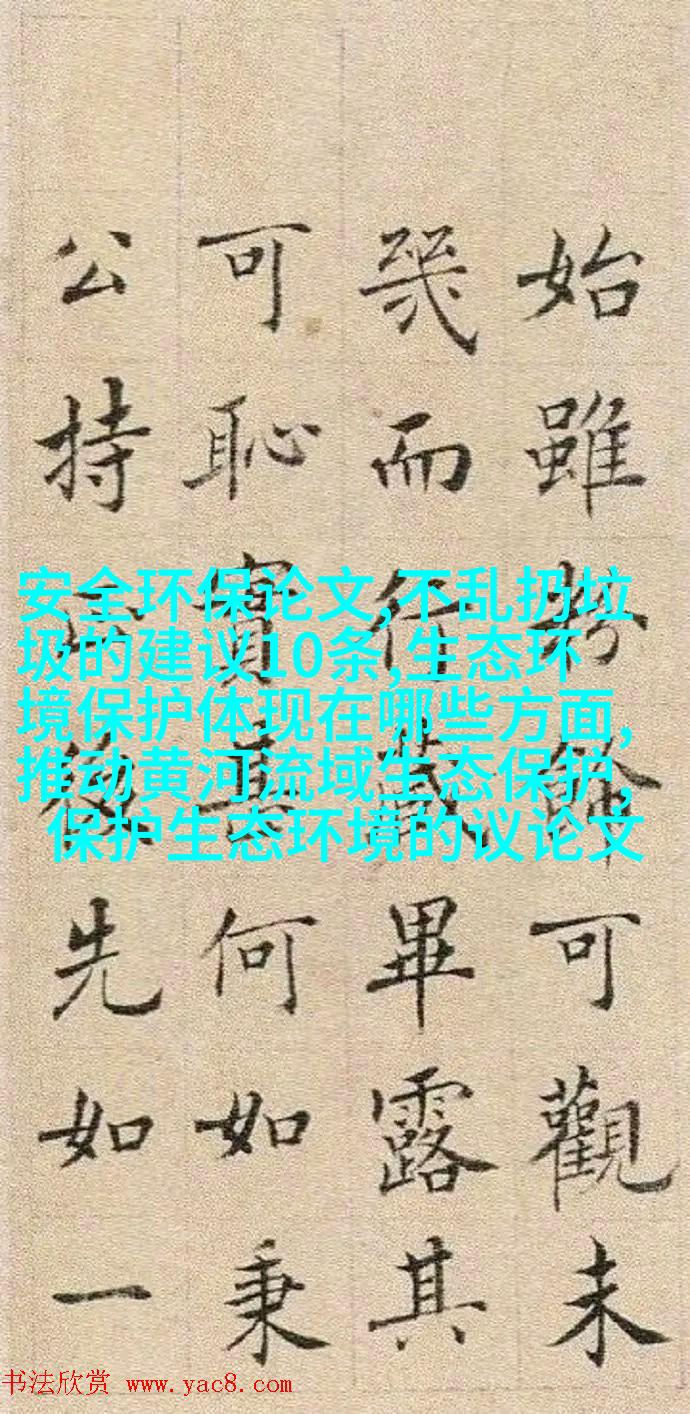 始雖矜飾可觀未
幾而行藏畢露其
可恥實甚何如秉
公持正後先如一
安全环保论文,不乱扔垃
圾的建议10条,生态环
境保护体现在哪些方面,
推动黄河流域生态保护,
保护生态环境的议论文
书法欣赏 www.yac8.com